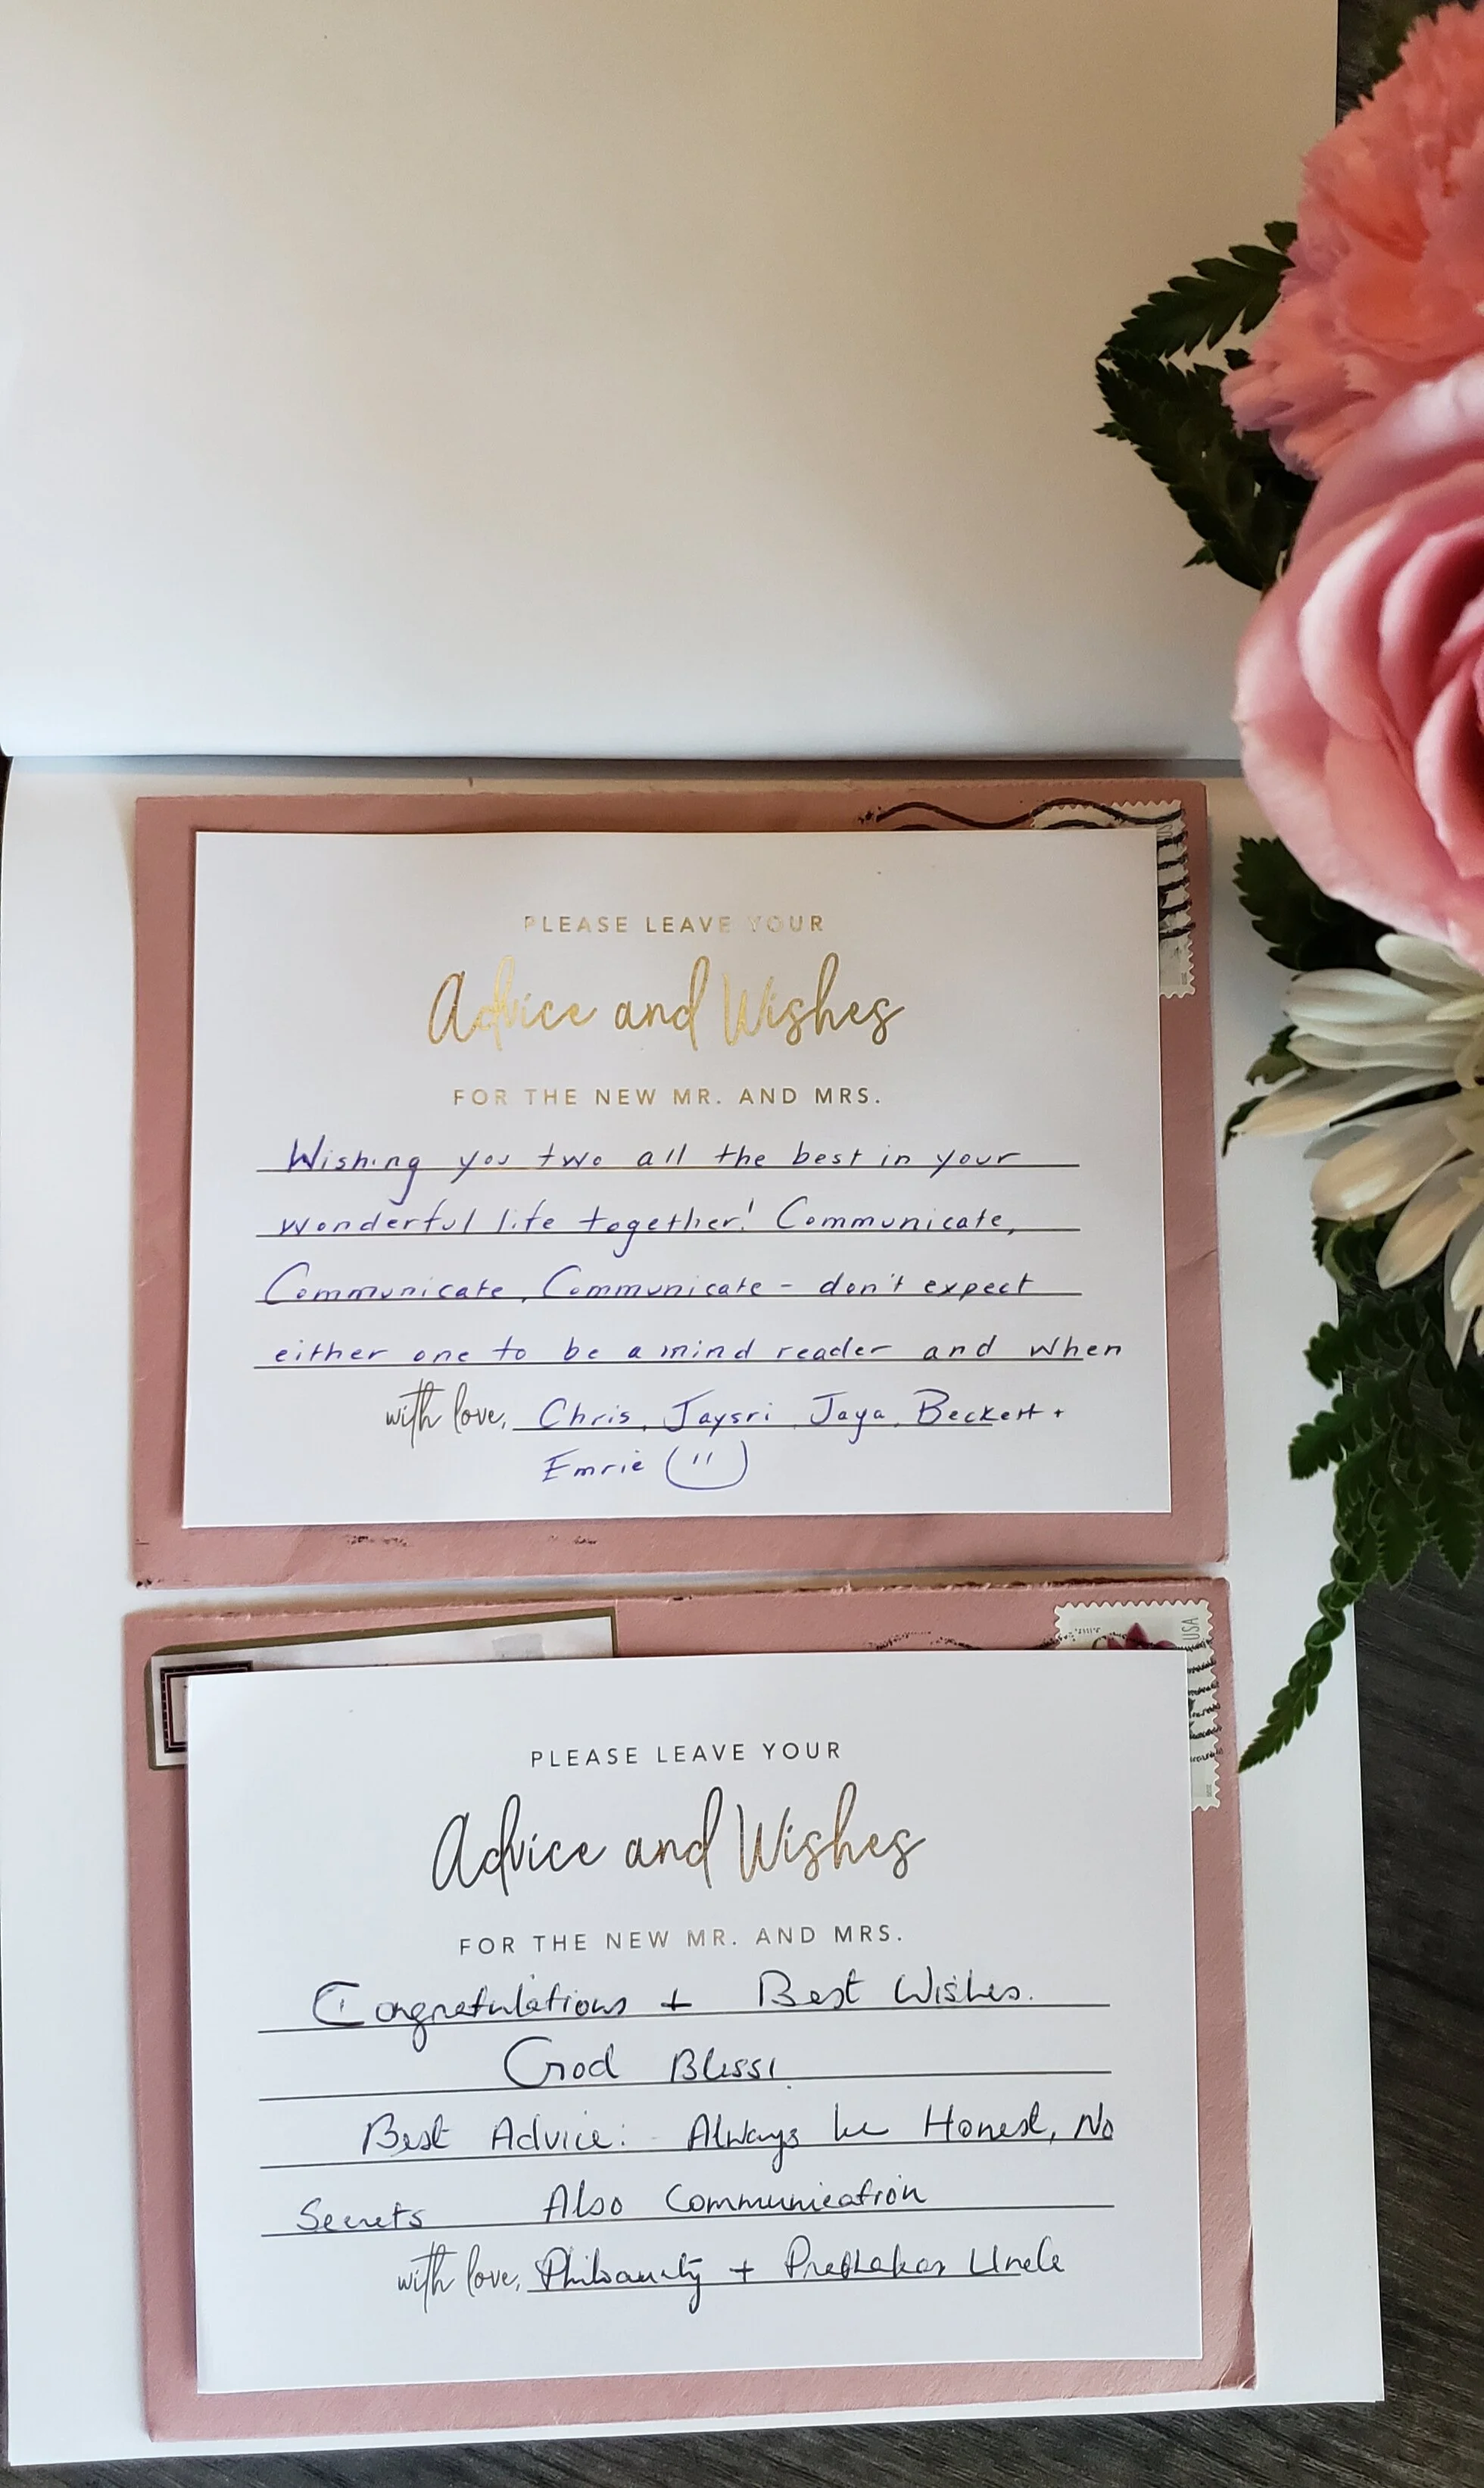 USA
PLEASE LEAVE YOUR
Advice and Wishes
FOR THE NEW MR. AND MRS.
Wishing you two all the best in your
wonderful life together! Communicate,
Communicate, Communicate - don't expect
either one to be a mind reader and when
with love, Chris, Jaysri, Jaya, Beckett +
Emrie
USA
PLEASE LEAVE YOUR
Advice and Wishes
FOR THE NEW MR. AND MRS.
Congratulations + Best Wishes.
God Bless!
Best Advice: Always be Honest, No
Secrets Also Communication
with love, + Prabhakar Uncle